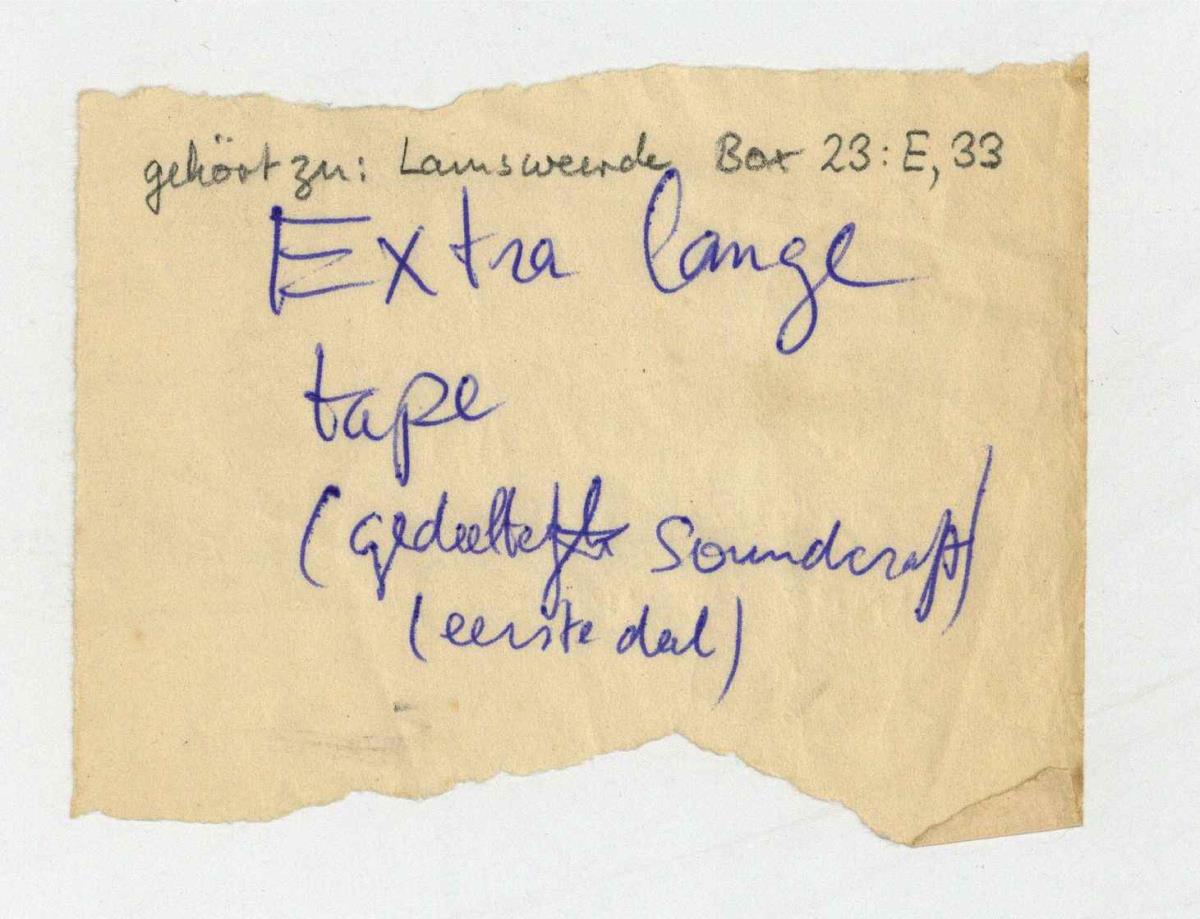 gehört zu: Lamsweerde Box 23: E, 33
Extra lange
tape
(gedeelte Soundcraft)
(eerste deel)